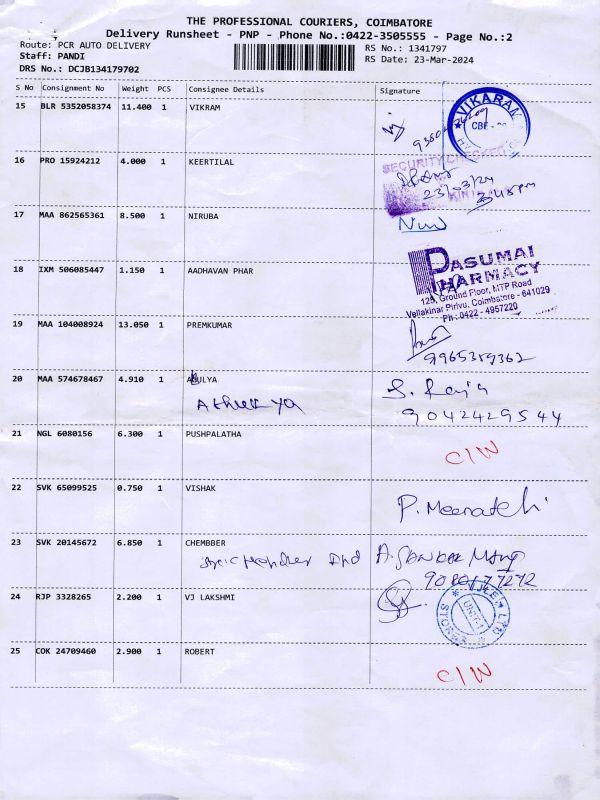 THE PROFESSIONAL COURIERS, COIMBATORE
Delivery Runsheet - PNP - Phone No.:0422-3505555 - Page No.:2
Route: PCR AUTO DELIVERY
RS No.: 1341797
Staff: PANDI
RS Date: 23-Mar-2024
DRS No.: DCJB134179702
S No Consignment No Weight PCS Consignee Details Signature
15 BLR 5352058374 11.400 1 VIKRAM
VIKARAN
CBE
16 PRO 15924212 4.000 1 KEERTILAL
SECURITY CHECKED
23/03/24
3:45pm
17 MAA 862565361 8.500 1 NIRUBA
18 IXM 506085447 1.150 1 AADHAVAN PHAR
PASUMAI
PHARMACY
Ground Floor, MTP Road
Vellakinar Pirivu, Coimbatore - 641029
Ph : 0422 - 4957220
19 MAA 104008924 13.050 1 PREMKUMAR
9965359362
20 MAA 574678467 4.910 1 ULYA
S. Raja
9042429544
21 NGL 6080156 6.300 1 PUSHPALATHA
C/W
22 SVK 65099525 0.750 1 VISHAK
P. Meenatchi
23 SVK 20145672 6.850 1 CHEMBBER
24 RJP 3328265 2.200 1 VJ LAKSHMI
STORES
25 COK 24709460 2.900 1 ROBERT
C/W